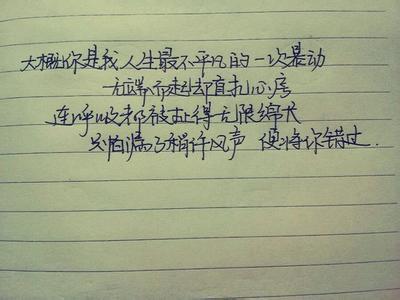 大概你是我人生最不平凡的一次悬动
无端而起却直扎心房
连呼吸都被拉得无限绵长
只怕漏了稍许风声 便将你错过.